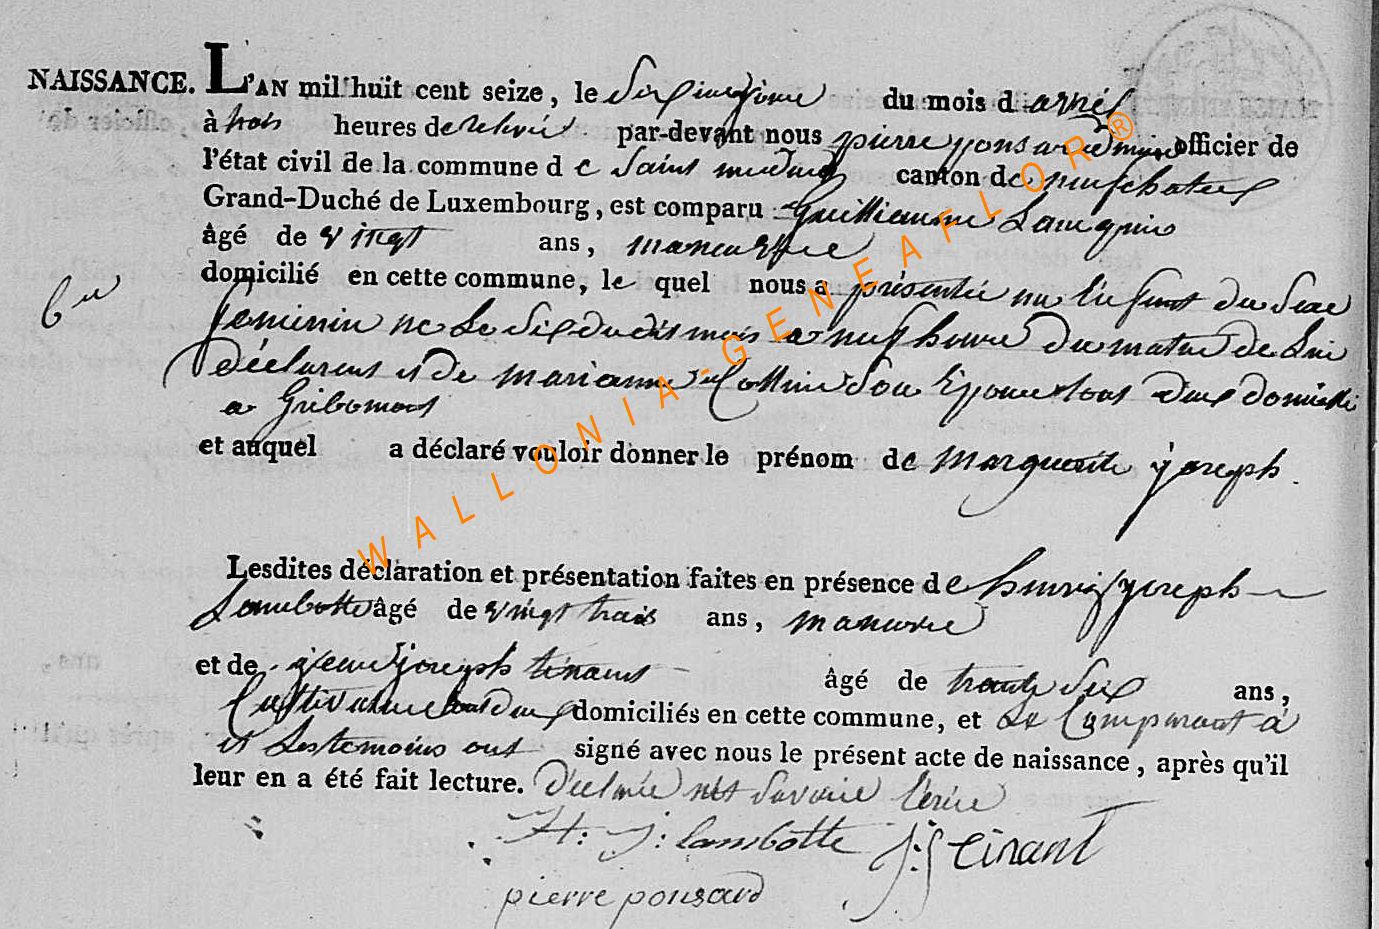 NAISSANCE. L'AN mil huit cent seize, le Sixiemejour du mois d avril
à trois heures de relevée par-devant nous pierre ponsard maire officier de
l'état civil de la commune d e Saint medard canton de neufchateau
Grand-Duché de Luxembourg, est comparu Guilliaume
âgé de vingt ans, manœuvre
domicilié en cette commune, le quel nous a présentée un Enfant du Sexe
feminin ne Le Six du dit mois a neuf heure du matin De Lui
déclarant et De marianne Collin Son Epouse tous Deux domicilié
a Gribomont
et auquel a déclaré vouloir donner le prénom de marguerite joseph.
6 eu
Lesdites déclaration et présentation faites en présence de henri joseph
Lambotte âgé de vingt trois ans, manœuvre
et de jean joseph tinant âgé de trente Six ans,
Cultivateur tous deux domiciliés en cette commune, et Le Comparant a
et Les temoins ont signé avec nous le présent acte de naissance, après qu'il
leur en a été fait lecture. Déclaré Savoir Ecrire
H: J: lambotte J: J tinant
pierre ponsard
WALLONIA-GENEAFLOR®